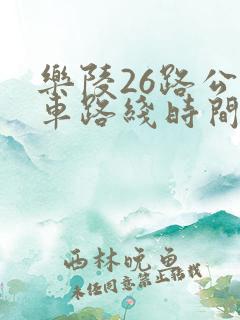 樂陵26路公
車路綫時間
西林晚鱼
未经同意禁止转载